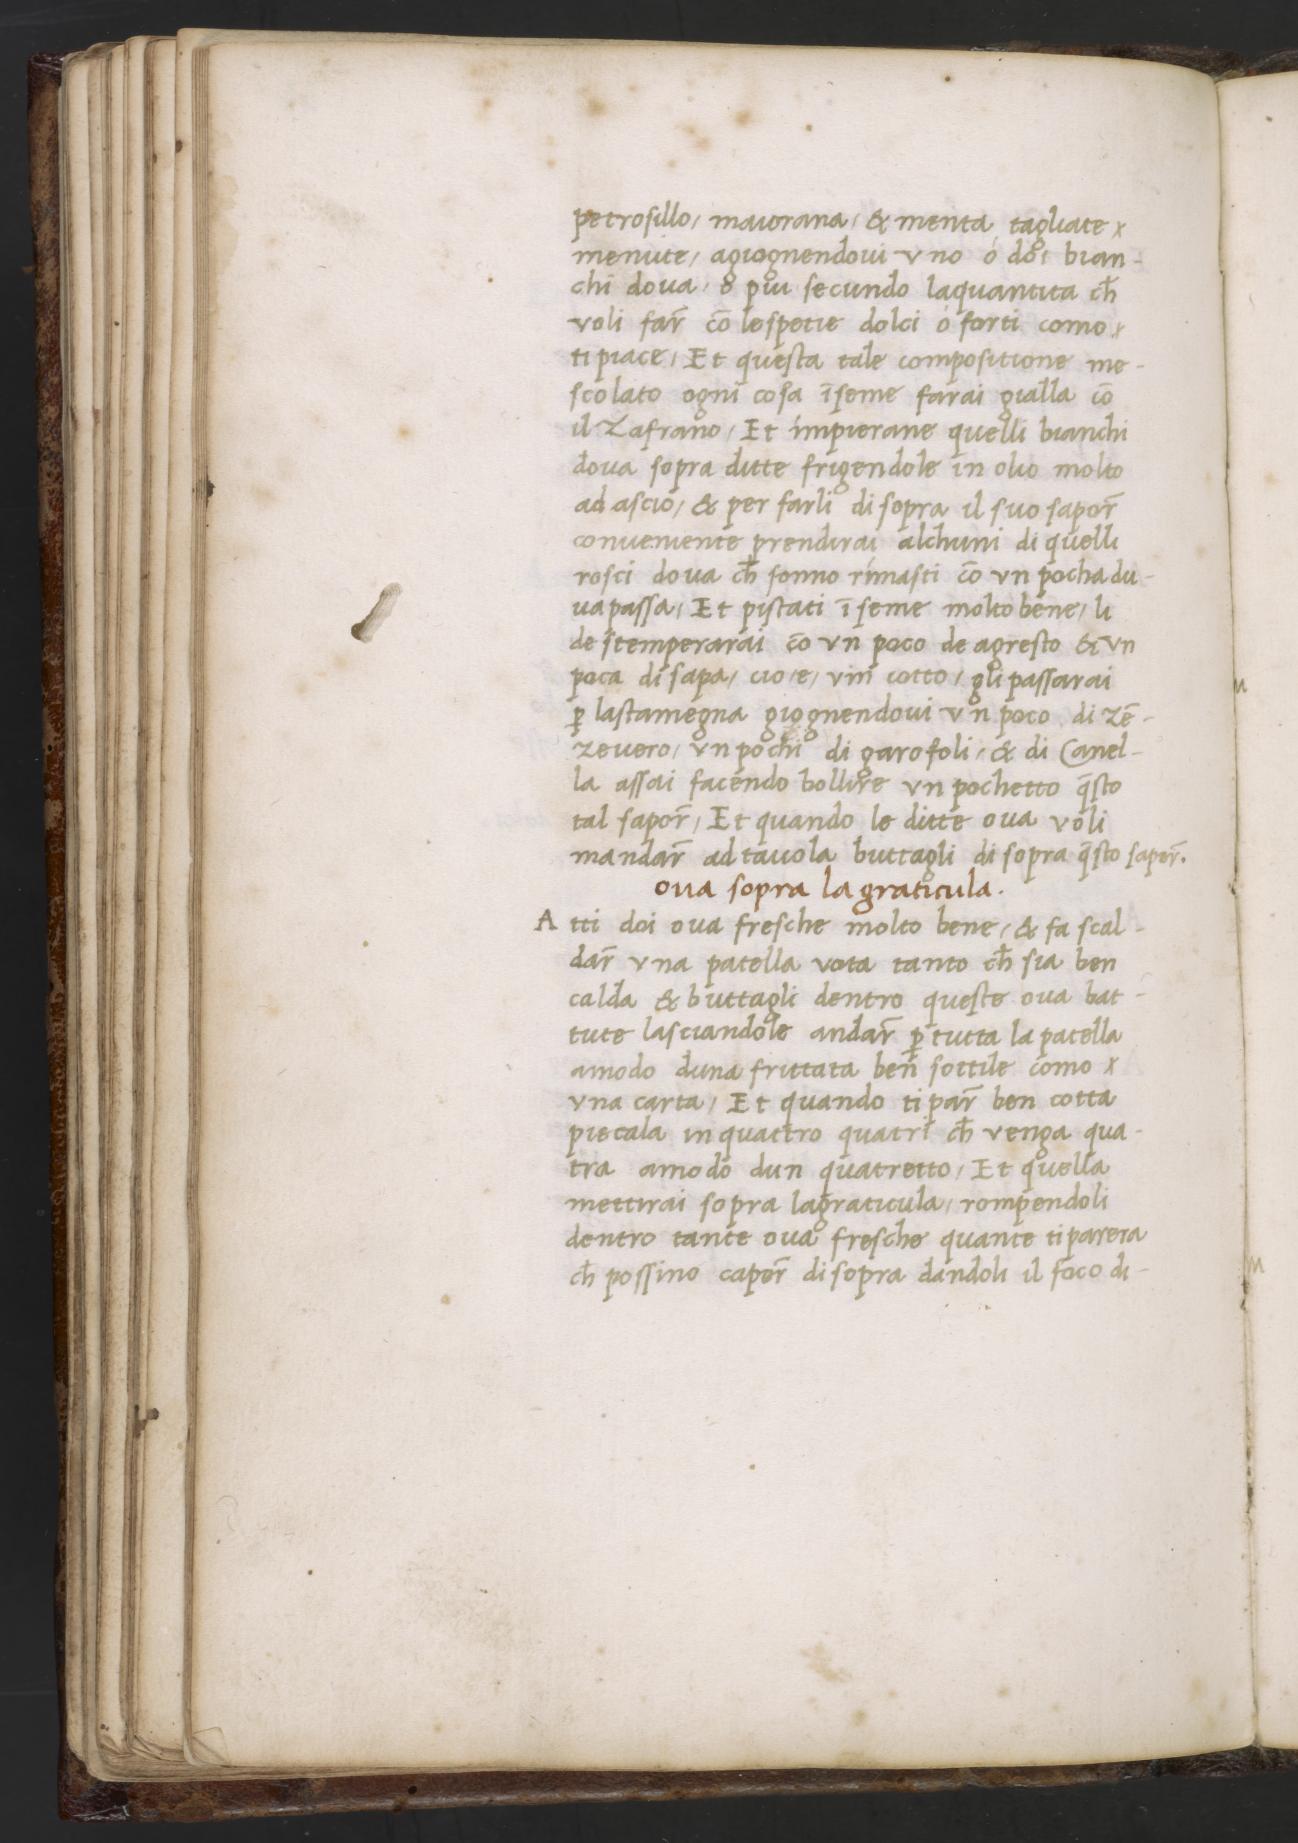 petrosillo, maiorana, & menta tagliate x
menute, agiognendoui uno ó doi bian-
chi doua, o piu secundo laquantita ch̄
voli far̄ cō lespetie dolci ó forti como x
ti piace, Et questa tale compositione me-
scolato ogni cosa īseme farai gialla cō
il Zafrano, Et impierane quelli bianchi
doua sopra ditte frigendole in olio molto
ad ascio, & per farli di sopra il suo sapor̄
conueniente prendirai alchuni di quelli
rosci doua ch̄ sonno rimasti cō vn pocha du-
ua passa, Et pistati īseme molto bene, li
destemperarai cō vn poco de agresto & vn
poca di sapa, cio, e, vin cotto, gli passarai
p̄ lastamegna giognendoui vn poco di zē-
zeuero, vn pochi di garofoli, & di Canel-
la assai facendo bollire vn pochetto q̄sto
tal sapor̄, Et quando le ditte oua voli
mandar̄ ad tauola buttagli di sopra q̄sto sapor̄.
oua sopra la graticula.
A tti doi oua fresche molto bene, & fa scal-
dar̄ vna patella vota tanto ch̄ sia ben
calda & buttagli dentro queste oua bat-
tute lasciandole andar̄ p̄ tutta la patella
amodo duna frittata ben̄ sottile como x
vna carta, Et quando ti par̄ ben cotta
piecala in quattro quatri ch̄ venga qua-
tra amodo dun quatretto, Et quella
mettirai sopra lagraticula, rompendoli
dentro tante oua fresche quante ti parera
ch̄ possino caper̄ di sopra dandoli il foco di-